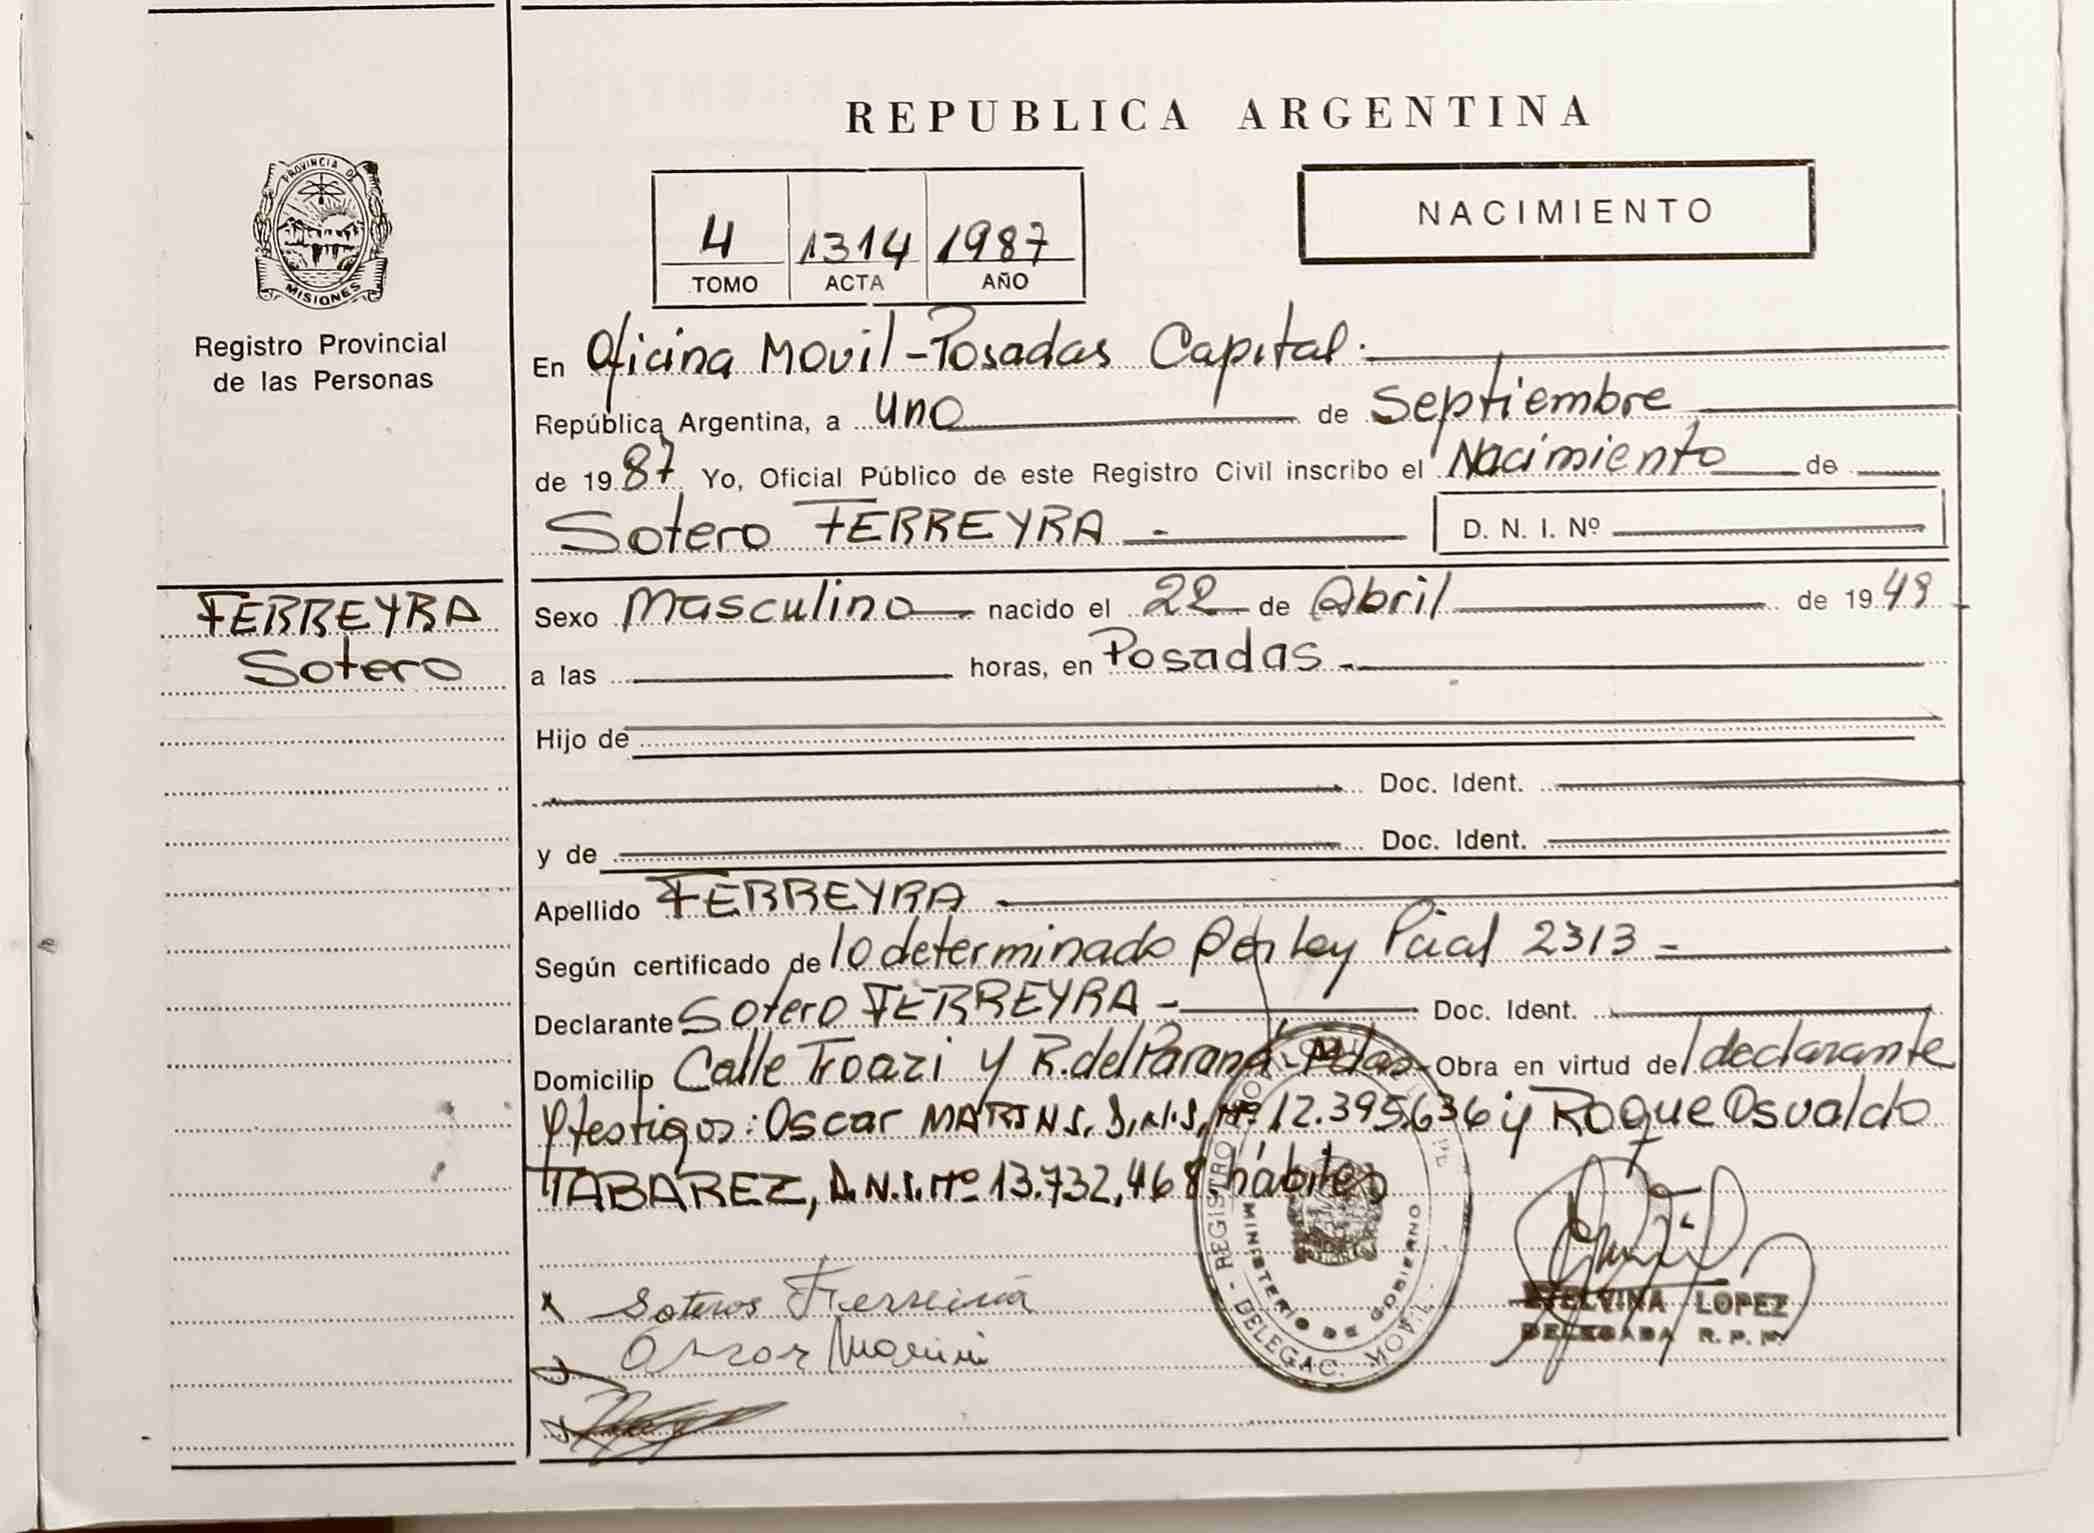 REPUBLICA ARGENTINA
PROVINCIA DE
MISIONES
Registro Provincial
de las Personas
4 1314 1987
TOMO ACTA AÑO
NACIMIENTO
En Oficina Movil - Posadas Capital.
República Argentina, a uno de Septiembre
de 1987 Yo, Oficial Público de este Registro Civil inscribo el Nacimiento de
Sotero FERREYRA - D. N. I. Nº
FERREYRA
Sotero
Sexo Masculino nacido el 22 de Abril de 1949
a las horas, en Posadas -
Hijo de
Doc. Ident.
y de Doc. Ident.
Apellido FERREYRA
Según certificado de lo determinado por Ley Pcial 2313 -
Declarante Sotero FERREYRA - Doc. Ident.
Domicilio Calle Troazi y R. del Paraná - Pdas - Obra en virtud de l declarante
y testigos: Oscar MARINS, D.N.I. Nº 12.395.636 y Roque Osvaldo
TABAREZ, D.N.I. Nº 13.732.468 hábiles
REGISTRO PROVINCIAL DE
DELEGAC. MOVIL
MINISTERIO DE GOBIERNO
Soteros Ferreira
ETELVINA LOPEZ
DELEGADA R. P. P.